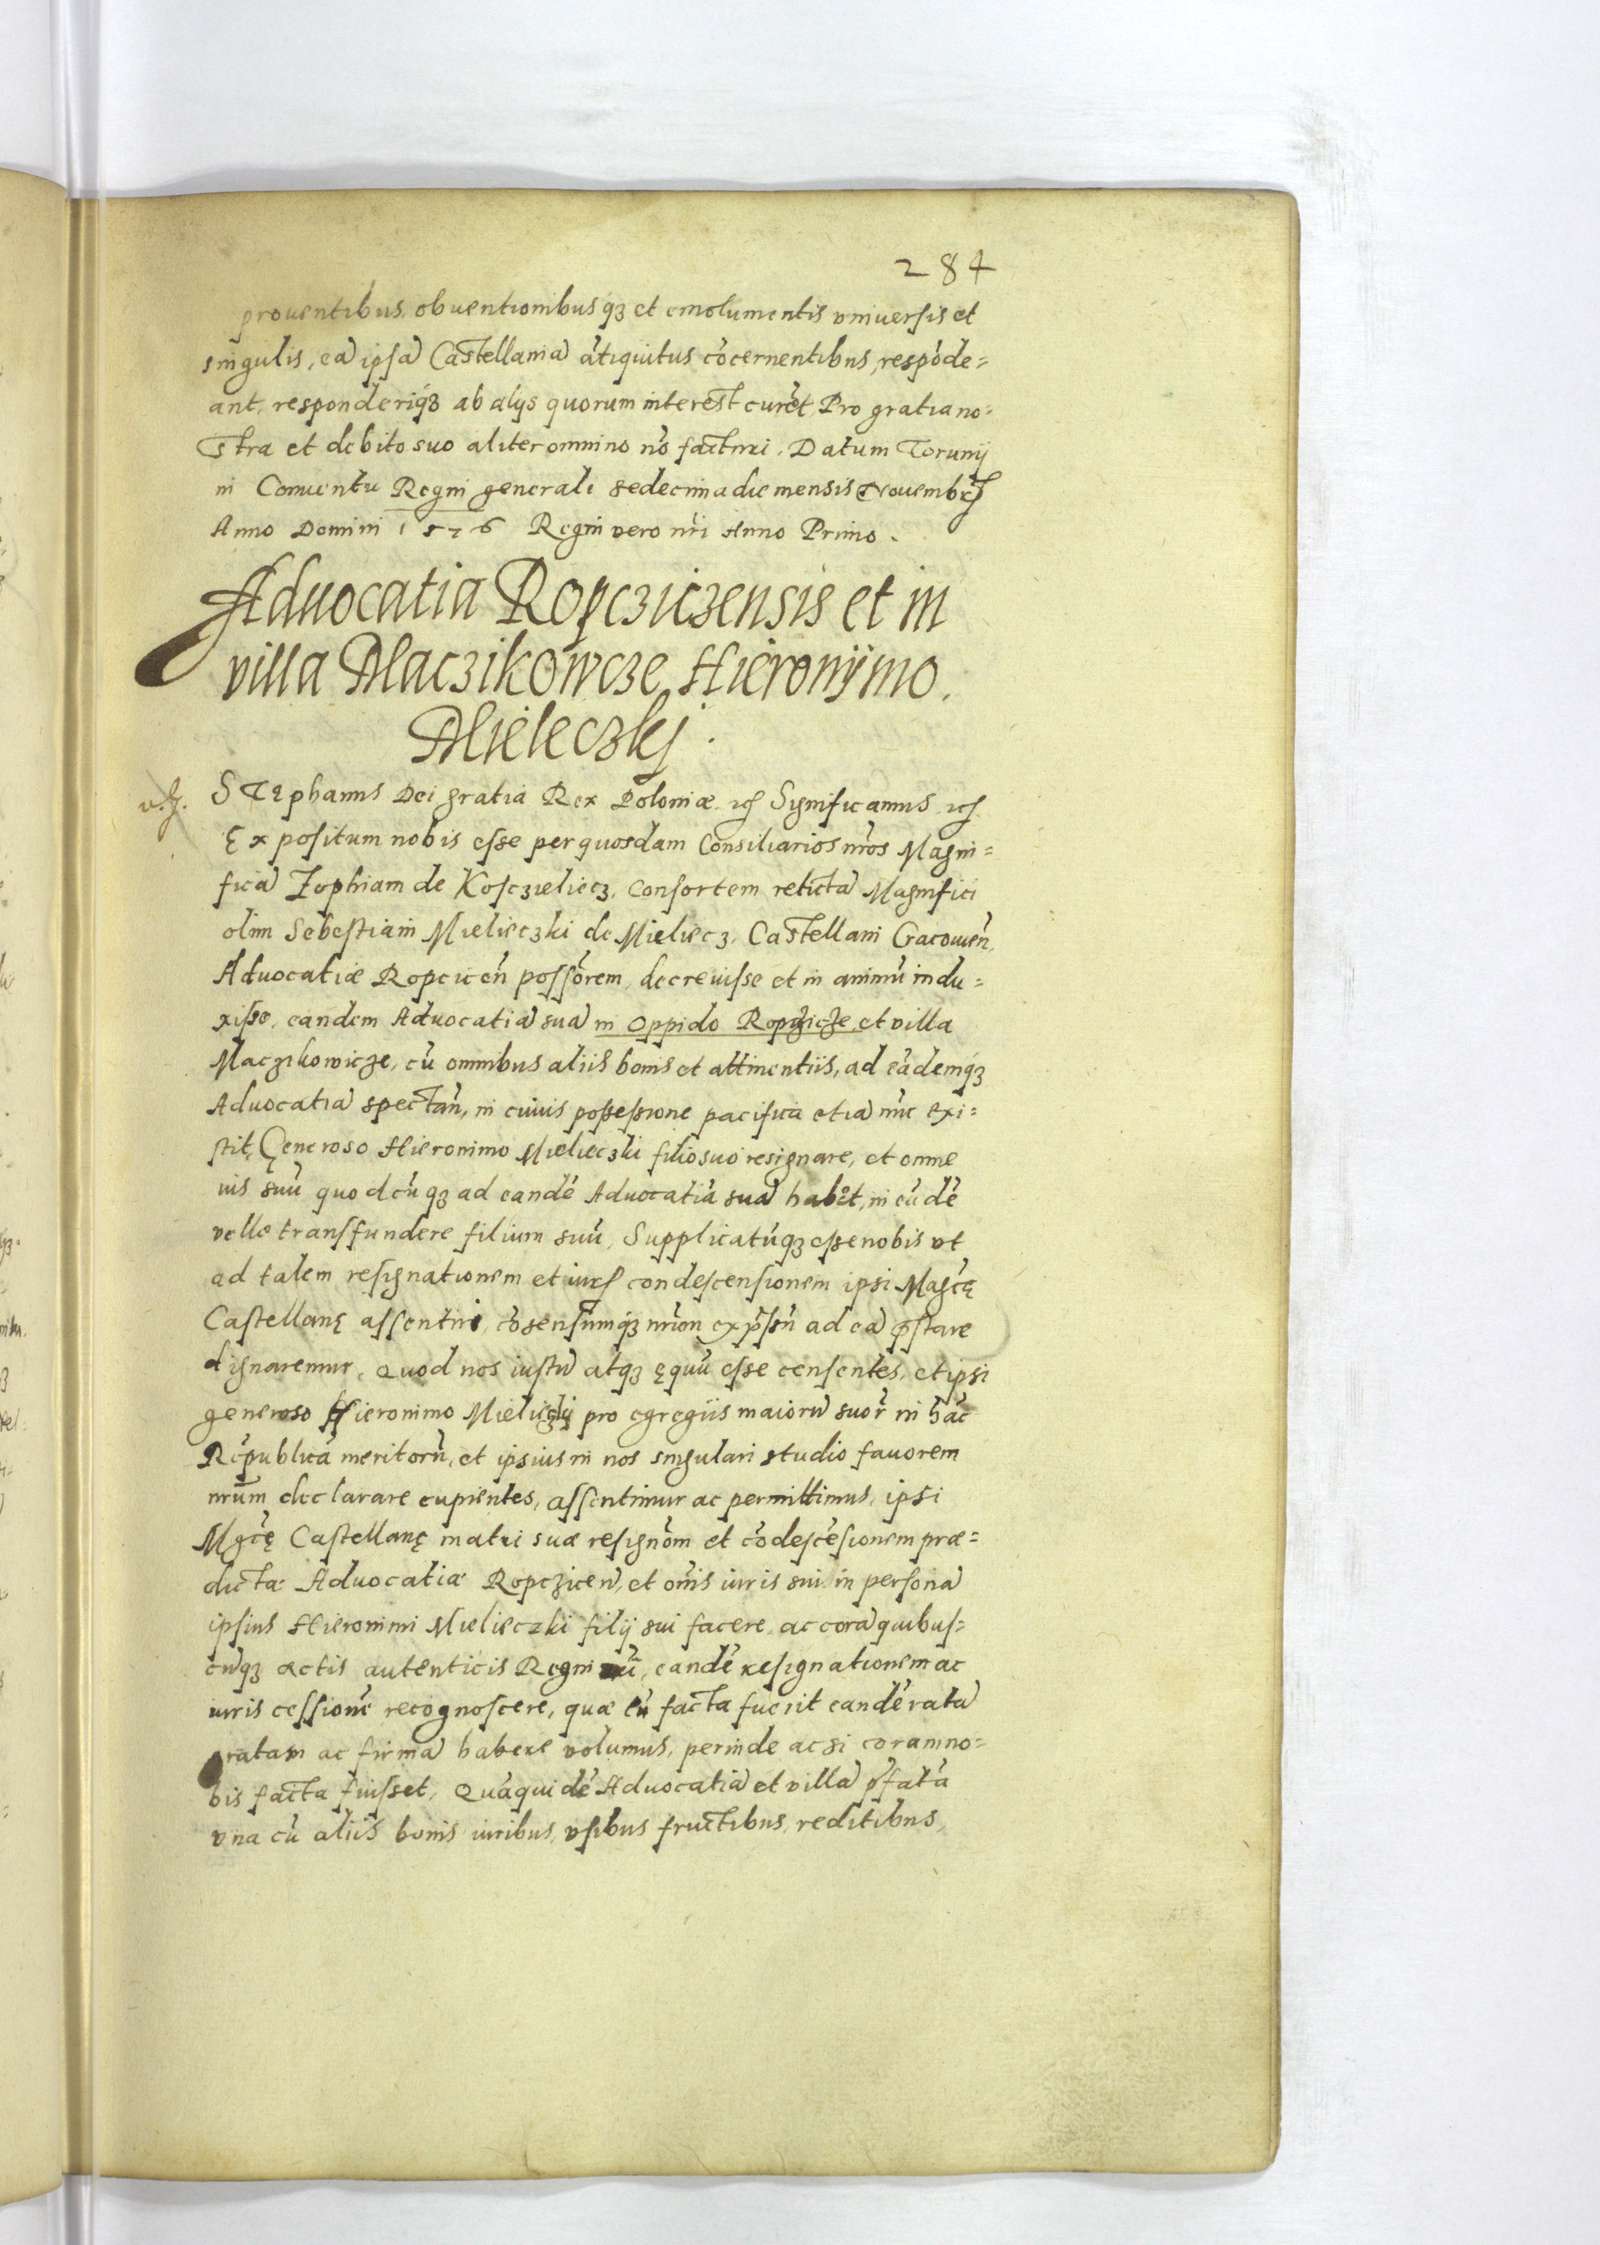 284
prouentibus, obuentionibusqꜣ et emolumentis vniuersis et
singulis, eā ipsā Castellaniā ātiquitus cōcernentibus, respōde=
ant, responderiqꜣ ab alijs quorum interest curēt, Pro gratia no=
stra et debito suo aliter omnino nō facturi. Datum Torunij
in Conuentu Regni generali sedecima die mensis Nouembrꝭ
Anno Domini 1576 Regni vero nr̄i Anno Primo.
Aduocatia Ropcziczensis et in
villa Maczikowcze Hieronijmo
Mieleczkj.
STephanus Dei gratia Rex Poloniæ ꝛc̄ Significamus ꝛc̄
Expositum nobis esse per quosdam Consiliarios nr̄os Magni=
ficā Zophiam de Kosczieliecz, Consortem relictā Magnifici
olim Sebestiani Mielieczki de Mieliecz, Castellani Cracouieñ,
Aduocatiæ Ropcicen̄ possōrem, decreuisse et in animū indu=
xisse, eandem Aduocatiā suā in Oppido Ropczicze, et villa
Maczikowicze, cū omnibus aliis bonis et attinentiis, ad eādemqꜣ
Aduocatiā spectan̄, in cuius possessione pacifica etiā nūc exi=
stit, Generoso Hieronimo Mielieczki filio suo resignare, et omne
ius suū quodcūqꜣ ad eandē Aduocatiā suā habēt, in eūdē
velle transfundere filium suū, Supplicatūqꜣ esse nobis vt
ad talem resignationem et iurꝭ condescensionem ipsi Magcę
Castellanę assentiri, cōsensumqꜣ nr̄um expr̄sū ad eā p̄stare
dignaremur, Quod nos iustū atqꜣ ęquū esse censentes, et ipsi
generoso Hieronimo pro egregiis maiorū suor̄ in hāc
Rēpublicā meritorū, et ipsius in nos singulari studio fauorem
nr̄um declarare cupientes, assentimur ac permittimus, ipsi
Mgcę Castellanę matri suæ resignōm et cōdescēsionem præ=
dictæ Aduocatiæ Ropcziceñ, et om̄is iuris sui in personā
ipsius Hieronimi Mielieczki filij sui facere, ac corā quibus=
cūqꜣ actis autenticis Regni nr̄i, eandē resignationem ac
iuris cessionē recognoscere, quæ cū facta fuerit eandē ratā
gratam ac firmā habere volumus, perinde ac si coram no=
bis facta fuisset, Quāquidē Aduocatiā et villā p̄fatā
vna cū aliis bonis iuribus, vsibus fructibus, reditibus,